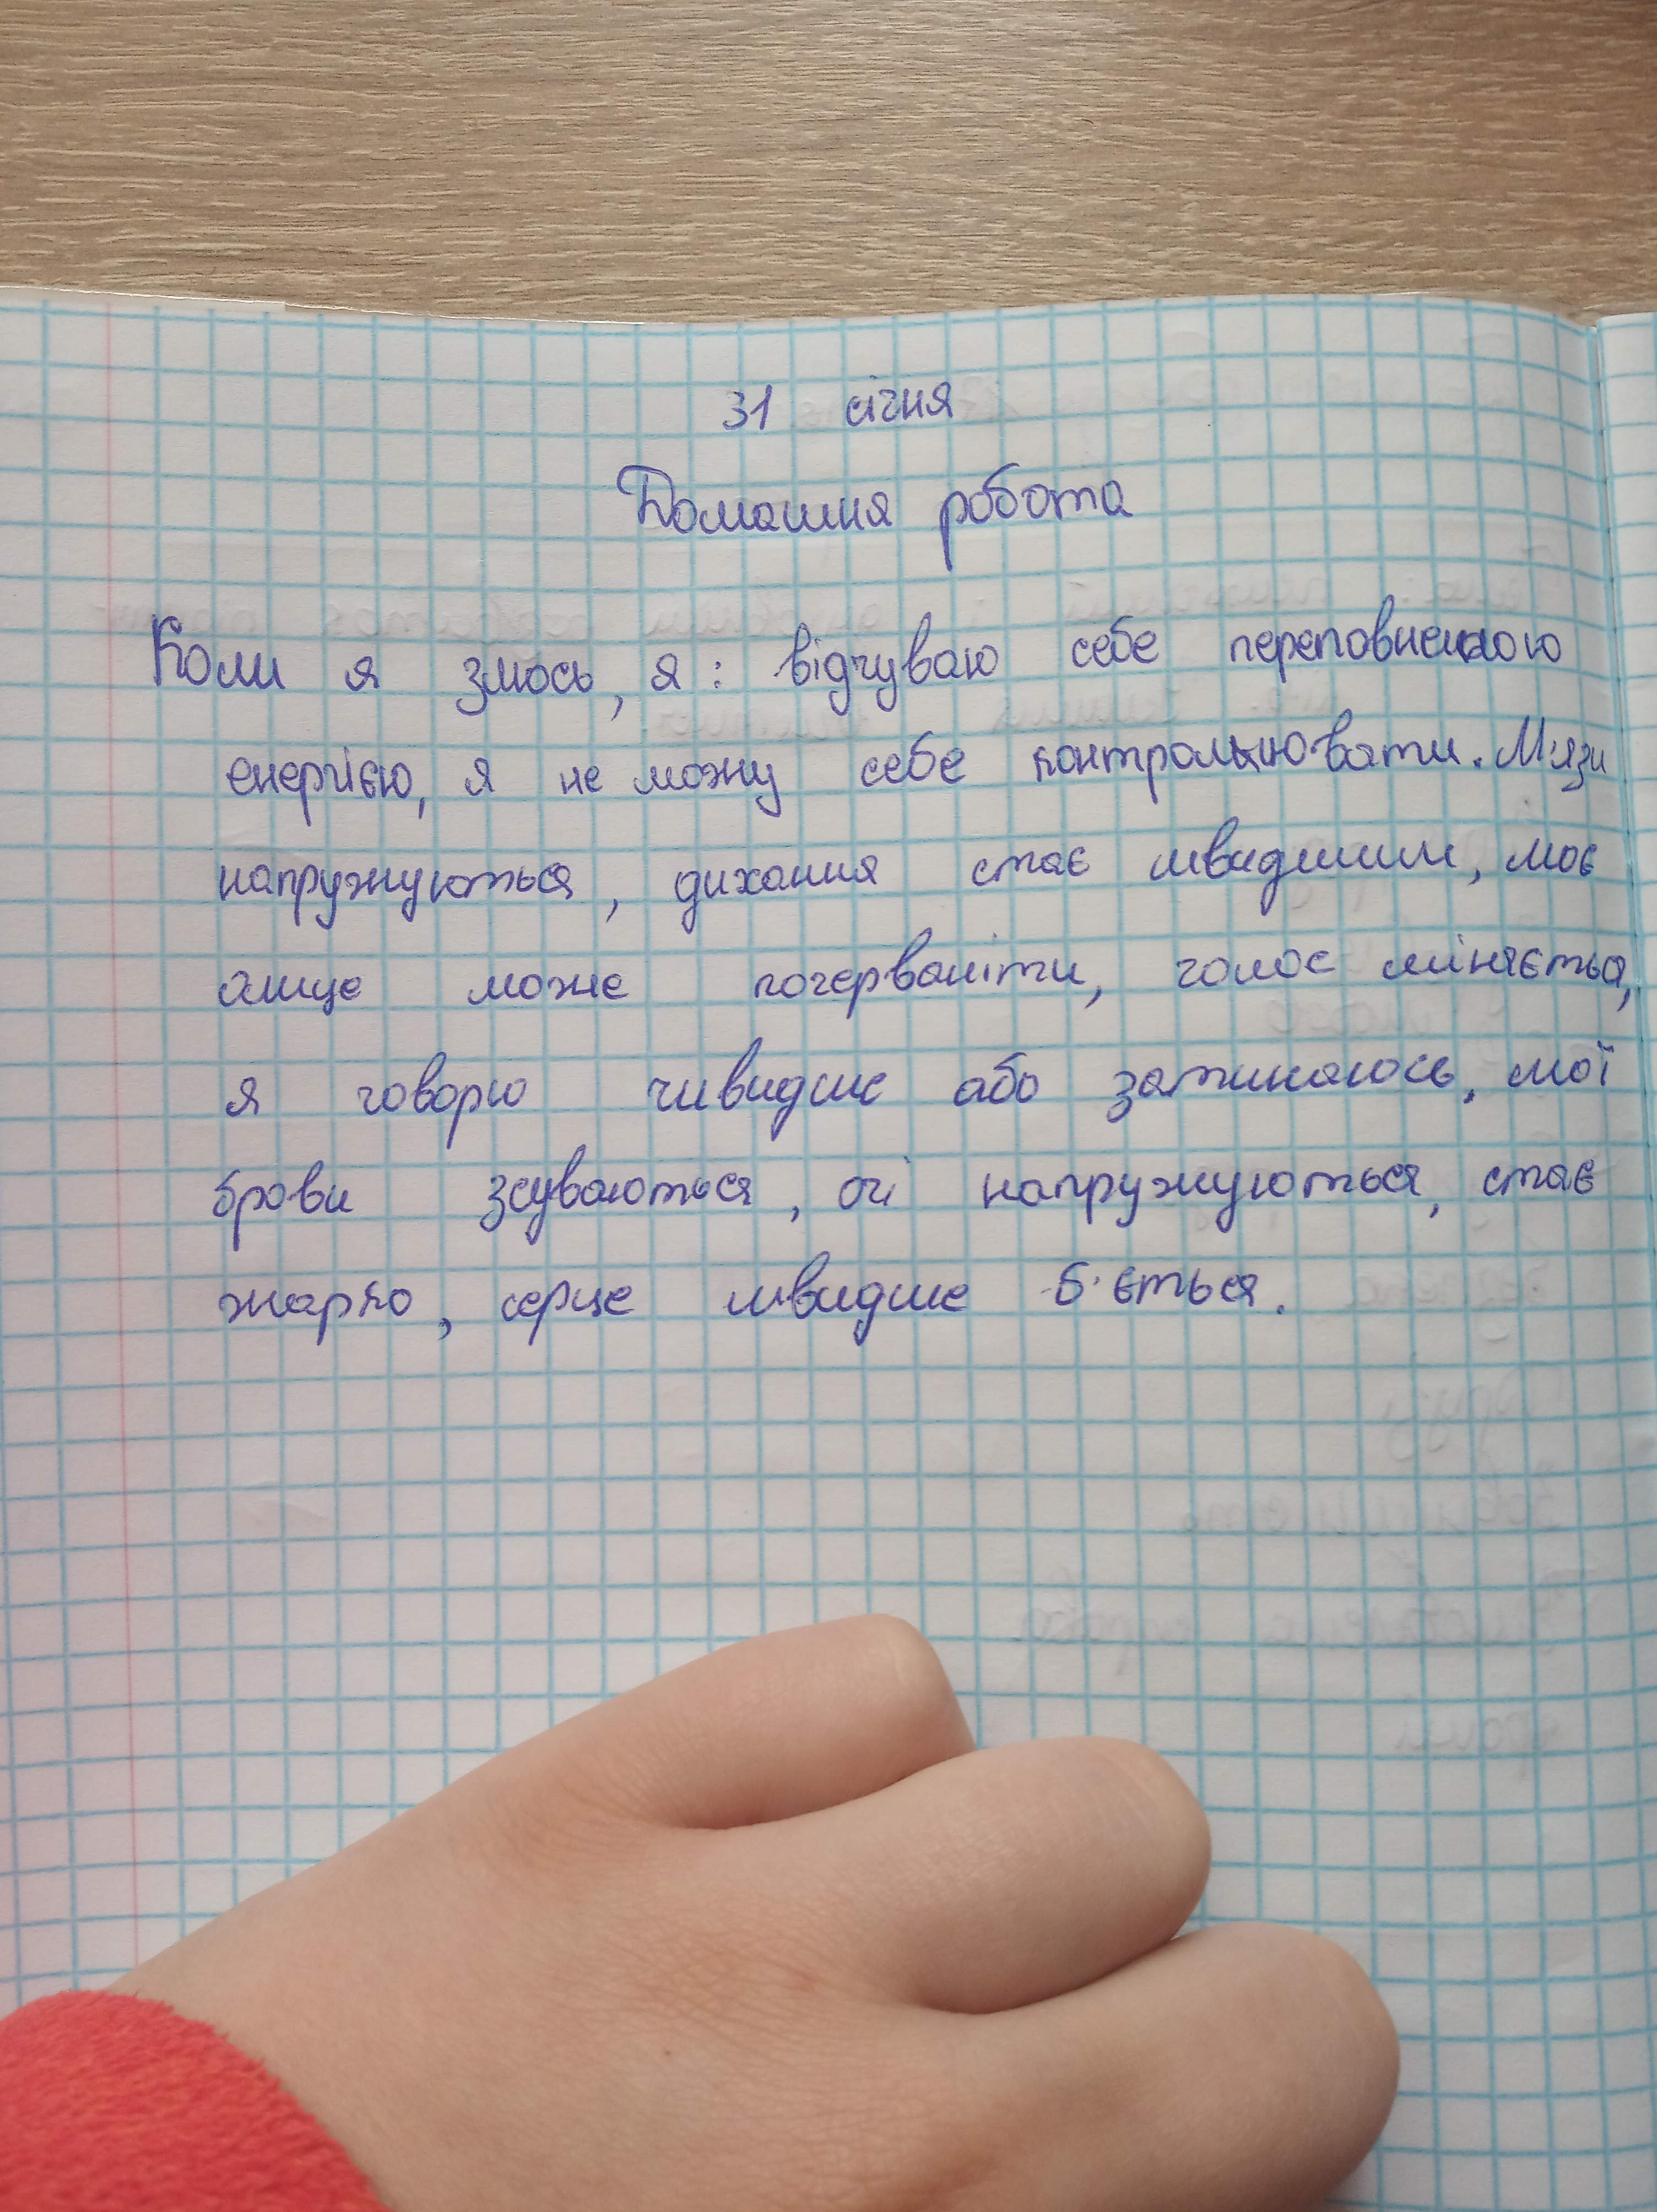 31 січня
Домашня робота
Коли я злюсь, я: відчуваю себе переповненою
енергією, я не можу себе контролювати. М'язи
напружуються, дихання стає швидшим, моє
лице може почервоніти, голос міняється,
я говорю швидше або затинаюсь, мої
брови зсуваються, очі напружуються, стає
жарко, серце швидше б'ється.